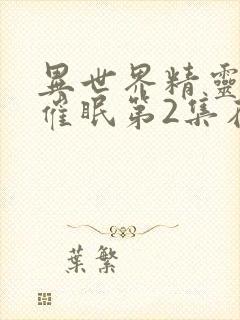 異世界精靈
催眠第2集
葉繁